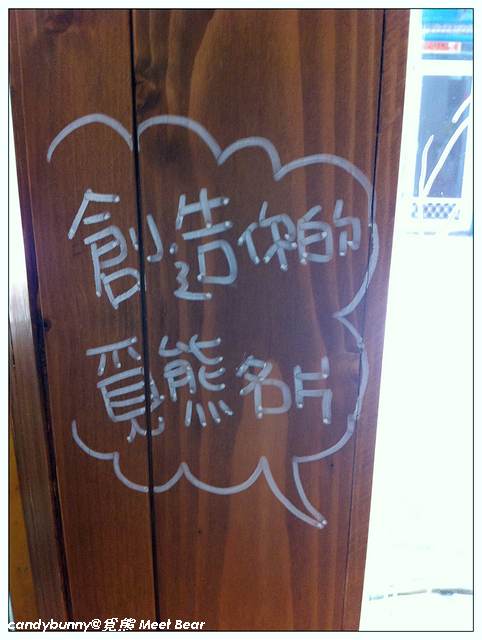 創造你的
覓熊名片
candybunny@覓熊 Meet Bear